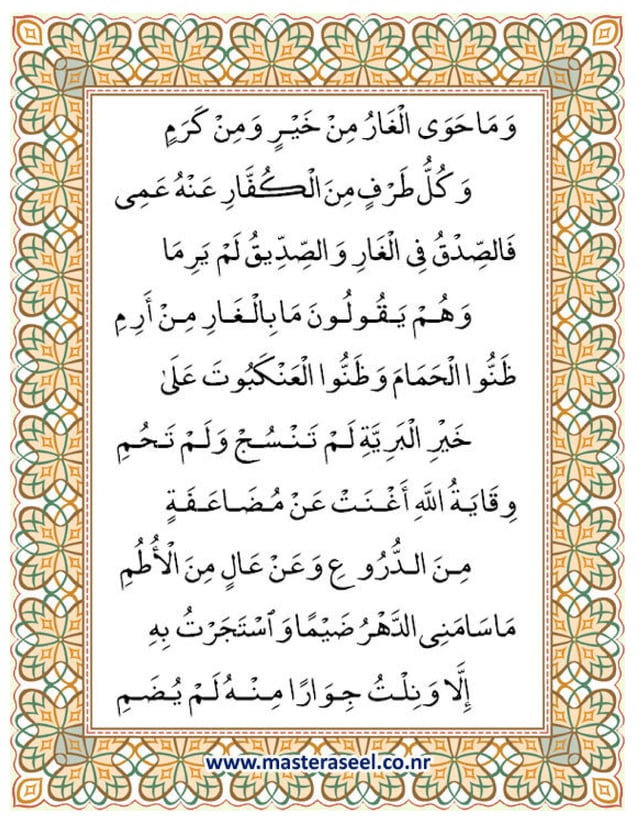 وَمَا حَوَى الْغَارُ مِنْ خَيْرٍ وَمِنْ كَرَمٍ
وَكُلُّ طَرْفٍ مِنَ الْكُفَّارِ عَنْهُ عَمِى
فَالصِّدْقُ فِى الْغَارِ وَالصِّدِّيقُ لَمْ يَرِمَا
وَهُمْ يَقُولُونَ مَا بِالْغَارِ مِنْ أَرِمِ
ظَنُّوا الْحَمَامَ وَظَنُّوا الْعَنْكَبُوتَ عَلَىٰ
خَيْرِ الْبَرِيَّةِ لَمْ تَنْسُجْ وَلَمْ تَحُمِ
وِقَايَةُ اللَّهِ أَغْنَتْ عَنْ مُضَاعَفَةٍ
مِنَ الدُّرُوعِ وَعَنْ عَالٍ مِنَ الْأُطُمِ
مَا سَامَنِى الدَّهْرُ ضَيْمًا وَٱسْتَجَرْتُ بِهِ
إِلَّا وَنِلْتُ جِوَارًا مِنْهُ لَمْ يُضَمِ
www.masteraseel.co.nr